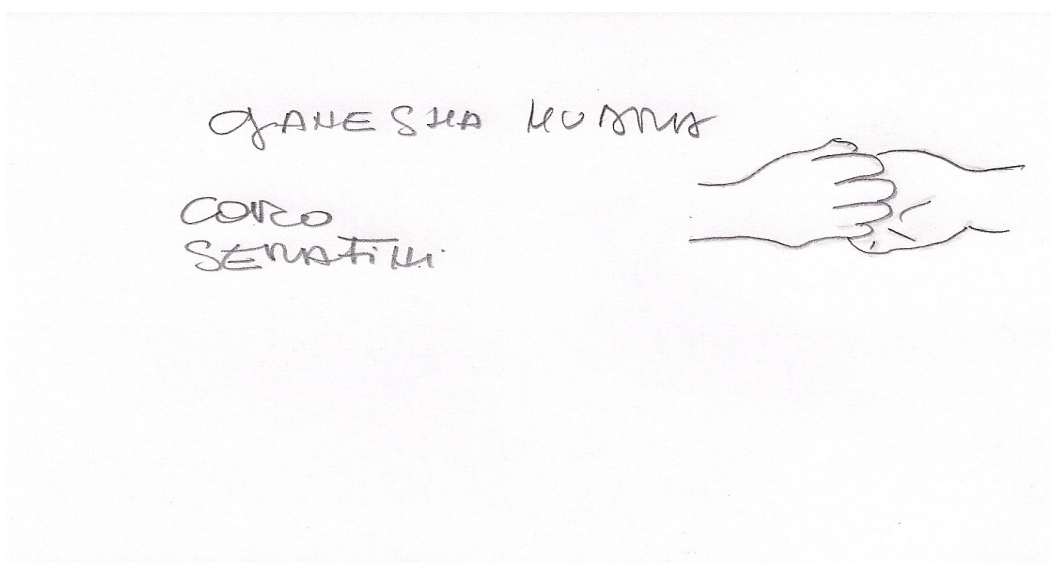 GANESHA MUDRA
CORO
SERAFINI